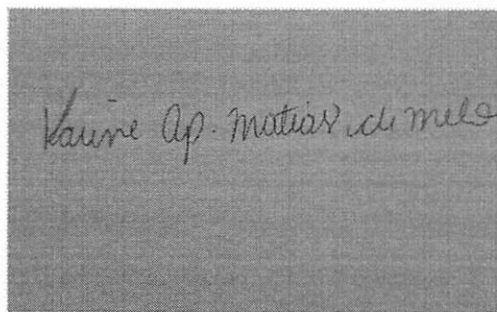 Karine Ap. Matias de Melo